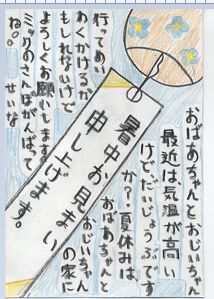 おばあちゃんとおじいちゃん
最近は気温が高い
けど、だいじょうぶです
か?夏休みは、
おばあちゃんと
おじいちゃん
の家に
暑中お見まい
申し上げます。
行ってめい
わくかけるか
もしれないけど
よろしくお願いします。
ミックのさんぽがんばって
ね。 せいな